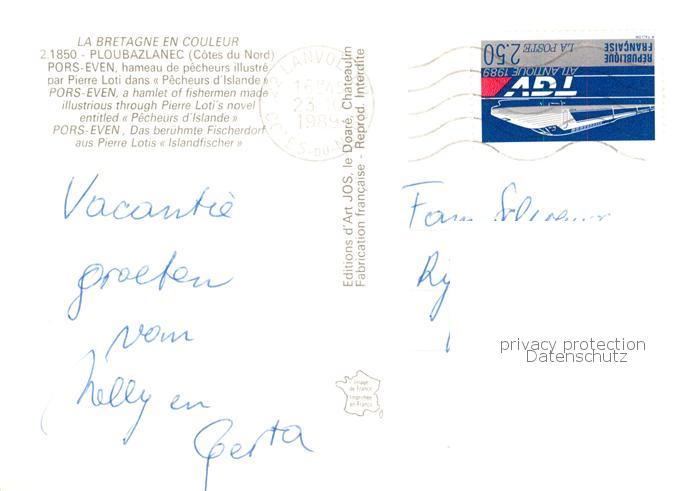 LA BRETAGNE EN COULEUR
2.1850 - PLOUBAZLANEC (Côtes du Nord)
PORS-EVEN, hameau de pêcheurs illustré
par Pierre Loti dans « Pêcheurs d'Islande »
PORS-EVEN, a hamlet of fishermen made
illustrious through Pierre Loti's novel
entitled « Pêcheurs d'Islande »
PORS-EVEN, Das berühmte Fischerdorf
aus Pierre Lotis « Islandfischer »
Vacantie
groeten
van
Nelly en
Gerta
Editions d'Art JOS, le Doaré, Chateaulin
Fabrication française - Reprod. Interdite
23
1989
RÉPUBLIQUE
FRANÇAISE
2.50
LA POSTE
ATLANTIQUE 1989
TGV
Fam
privacy protection
Datenschutz
Image
de France
Imprimée
en France